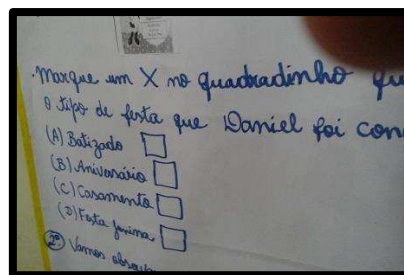 . Marque um X no quadradinho qu
o tipo de festa que Daniel foi con
(A) Batizado
(B) Aniversário
(C) Casamento
(D) Festa junina
2º Vamos